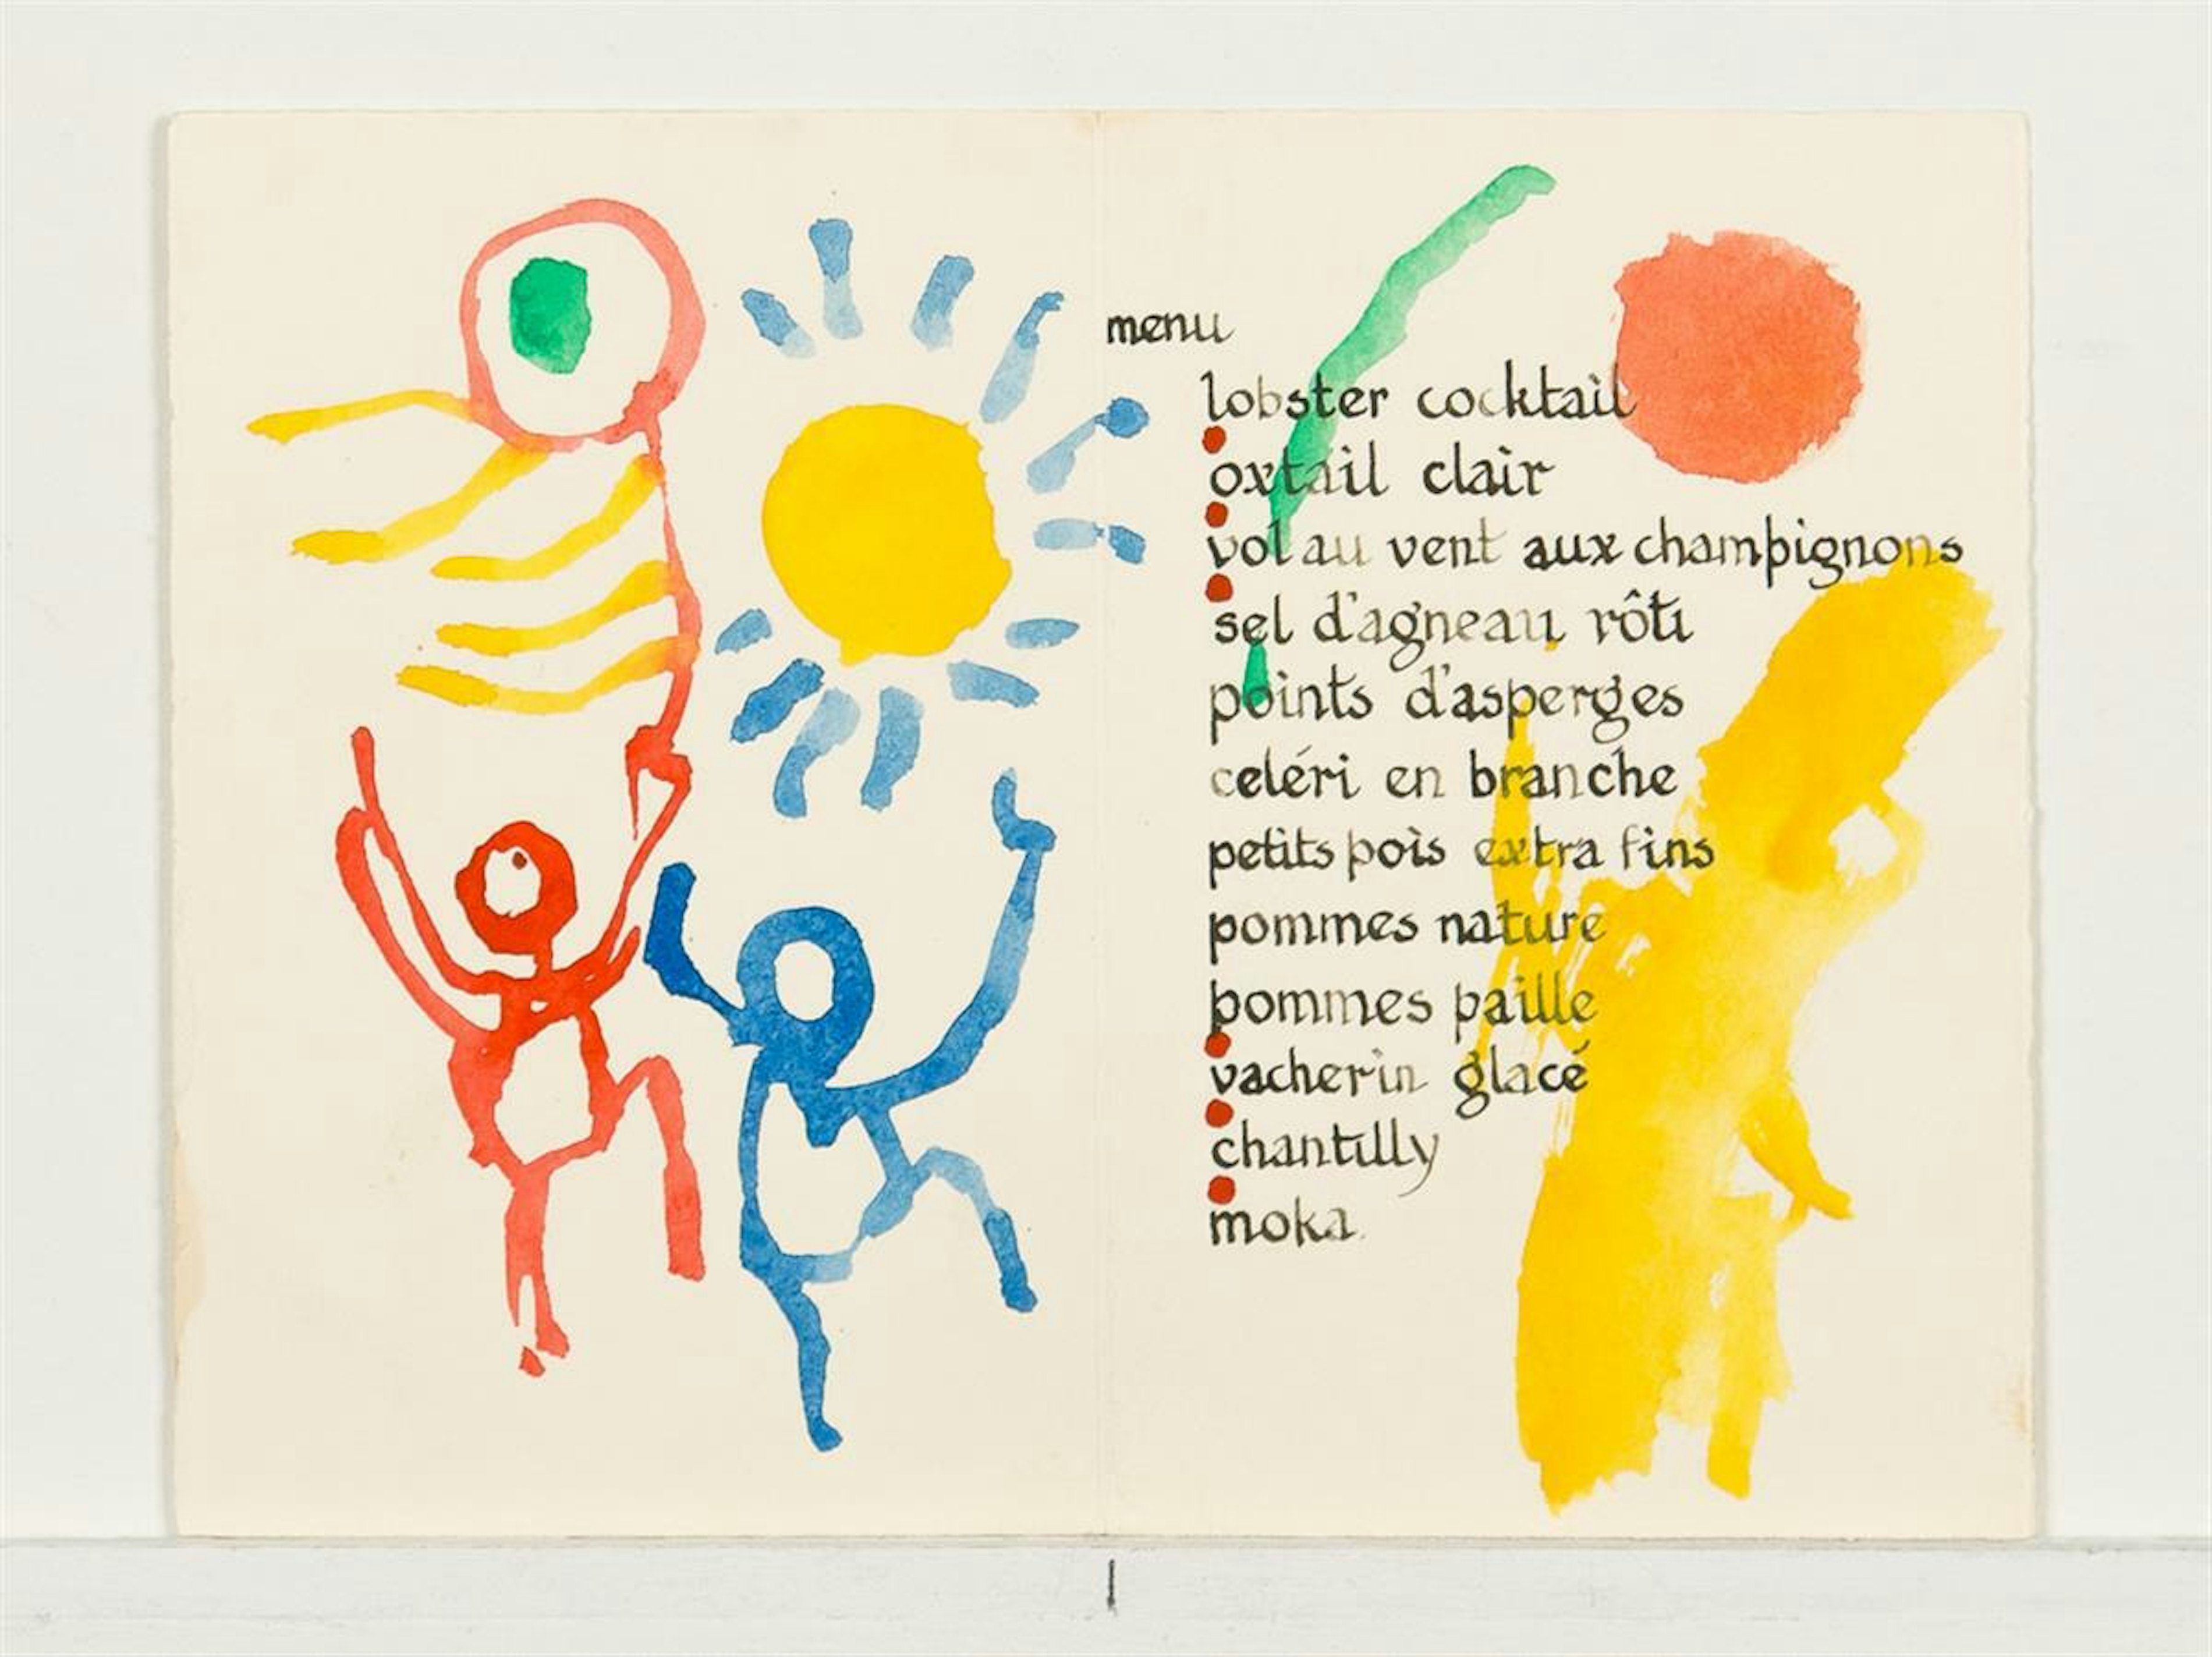 menu
lobster cocktail
oxtail clair
vol au vent aux champignons
sel d'agneau rôti
points d'asperges
celéri en branche
petits pois extra fins
pommes nature
pommes paille
vacherin glacé
chantilly
moka.